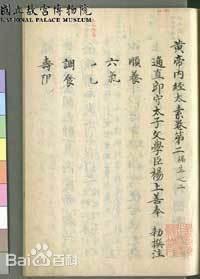 國立故宮博物院
NATIONAL PALACE MUSEUM
黃帝内經太素卷第二攝生之二
通直郎守太子文學臣楊上善奉 勅撰注
順養
六氣
九氣
調食
壽限
Bai百科